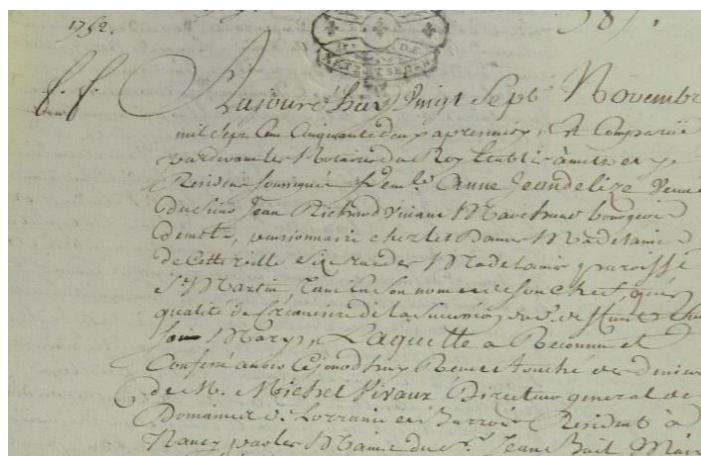 1752.
587.
Aujourd'huy Vingt Sept Novembre
mil Sept Cent Cinquante deux apres midy, Est Comparüe
pardevant les Notaires du Roy Etablis à metz et y
Residens soussignés Anne Jeandelize Veuve
du Sieur Jean Richard vivant Marchand bourgeois
demetz, pensionnaire chez les Dames Madelaine
de Cette ville Size rue des Madelaine, paroisse
St Martin, tant En Son nom et de Son Chef, que
qualité de Créanciere de la Succession dud.
Mary, Laquelle a Reconnu et
Confessé avoir Cejourdhuy Receu et touché des deniers
de M. Michel Vivaux Directeur general des
Domaines de Lorraine et Barrois Resident à
Nancy par les Mains du Sr. Jean